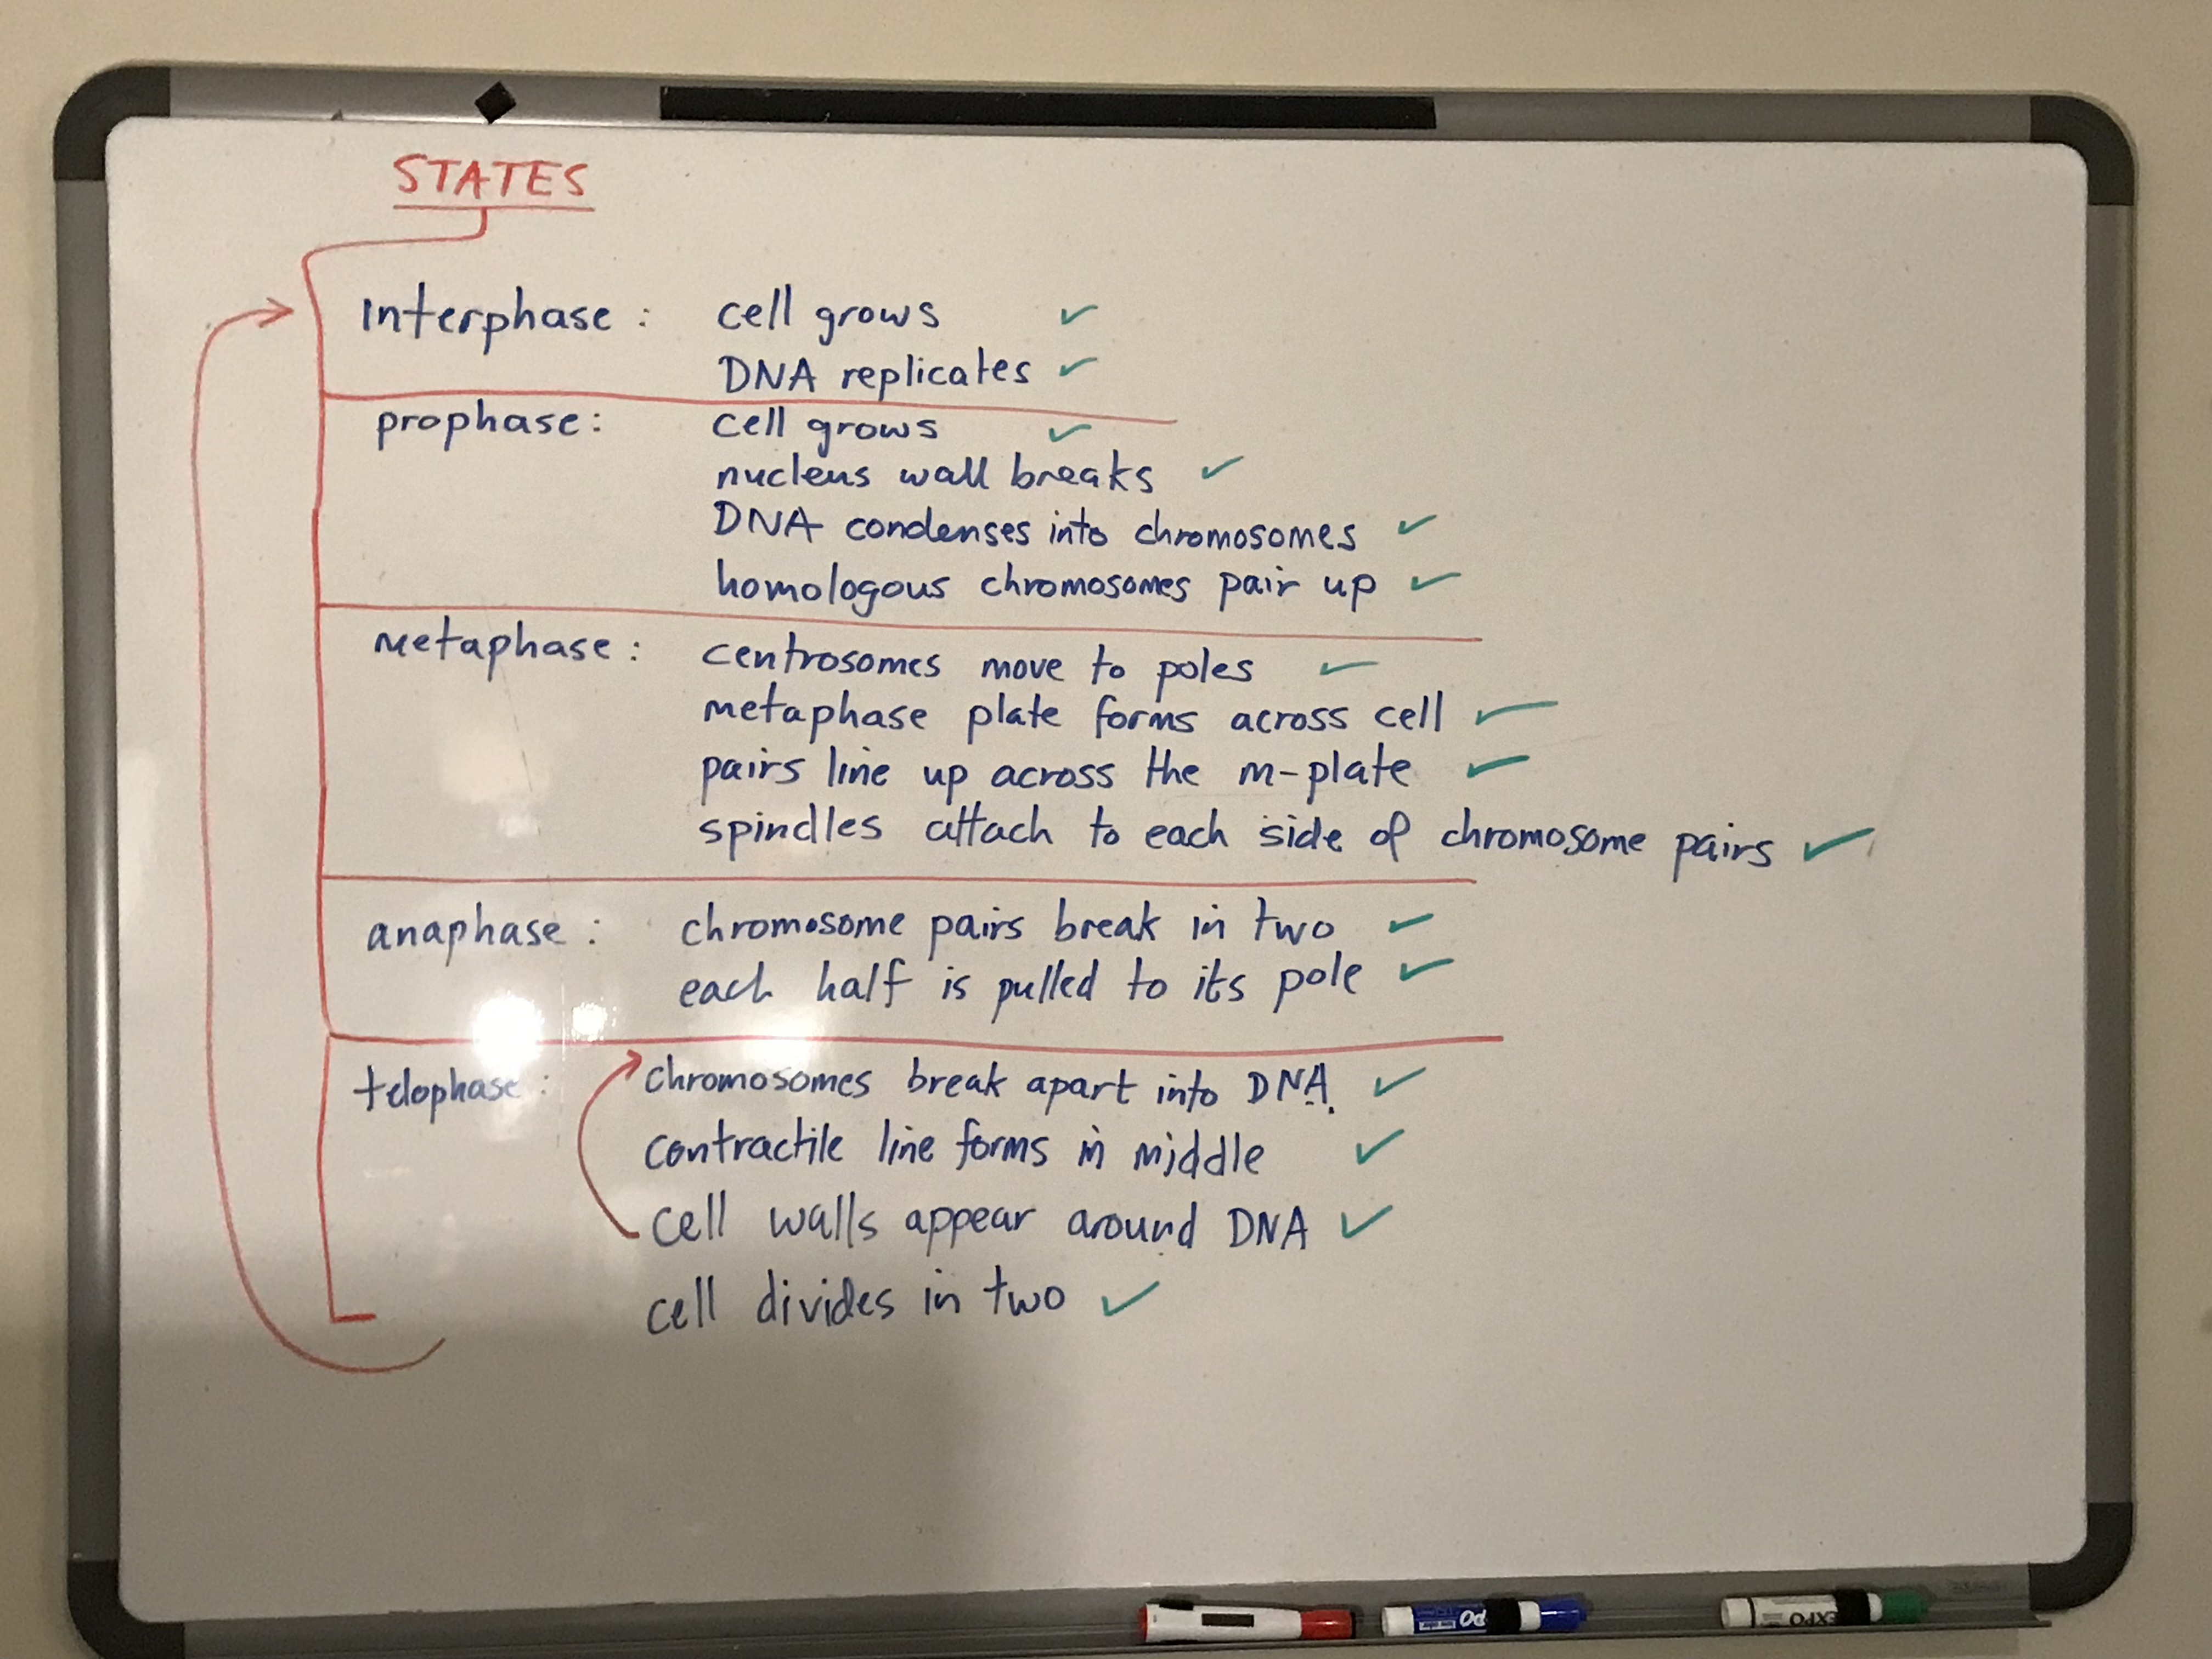 STATES
Interphase : cell grows ✓
DNA replicates ✓
prophase : cell grows ✓
nucleus wall breaks ✓
DNA condenses into chromosomes ✓
homologous chromosomes pair up ✓
metaphase : centrosomes move to poles ✓
metaphase plate forms across cell ✓
pairs line up across the m-plate ✓
spindles attach to each side of chromosome pairs ✓
anaphase : chromosome pairs break in two ✓
each half is pulled to its pole ✓
telophase : chromosomes break apart into DNA. ✓
contractile line forms in middle ✓
cell walls appear around DNA ✓
cell divides in two ✓
EXPO